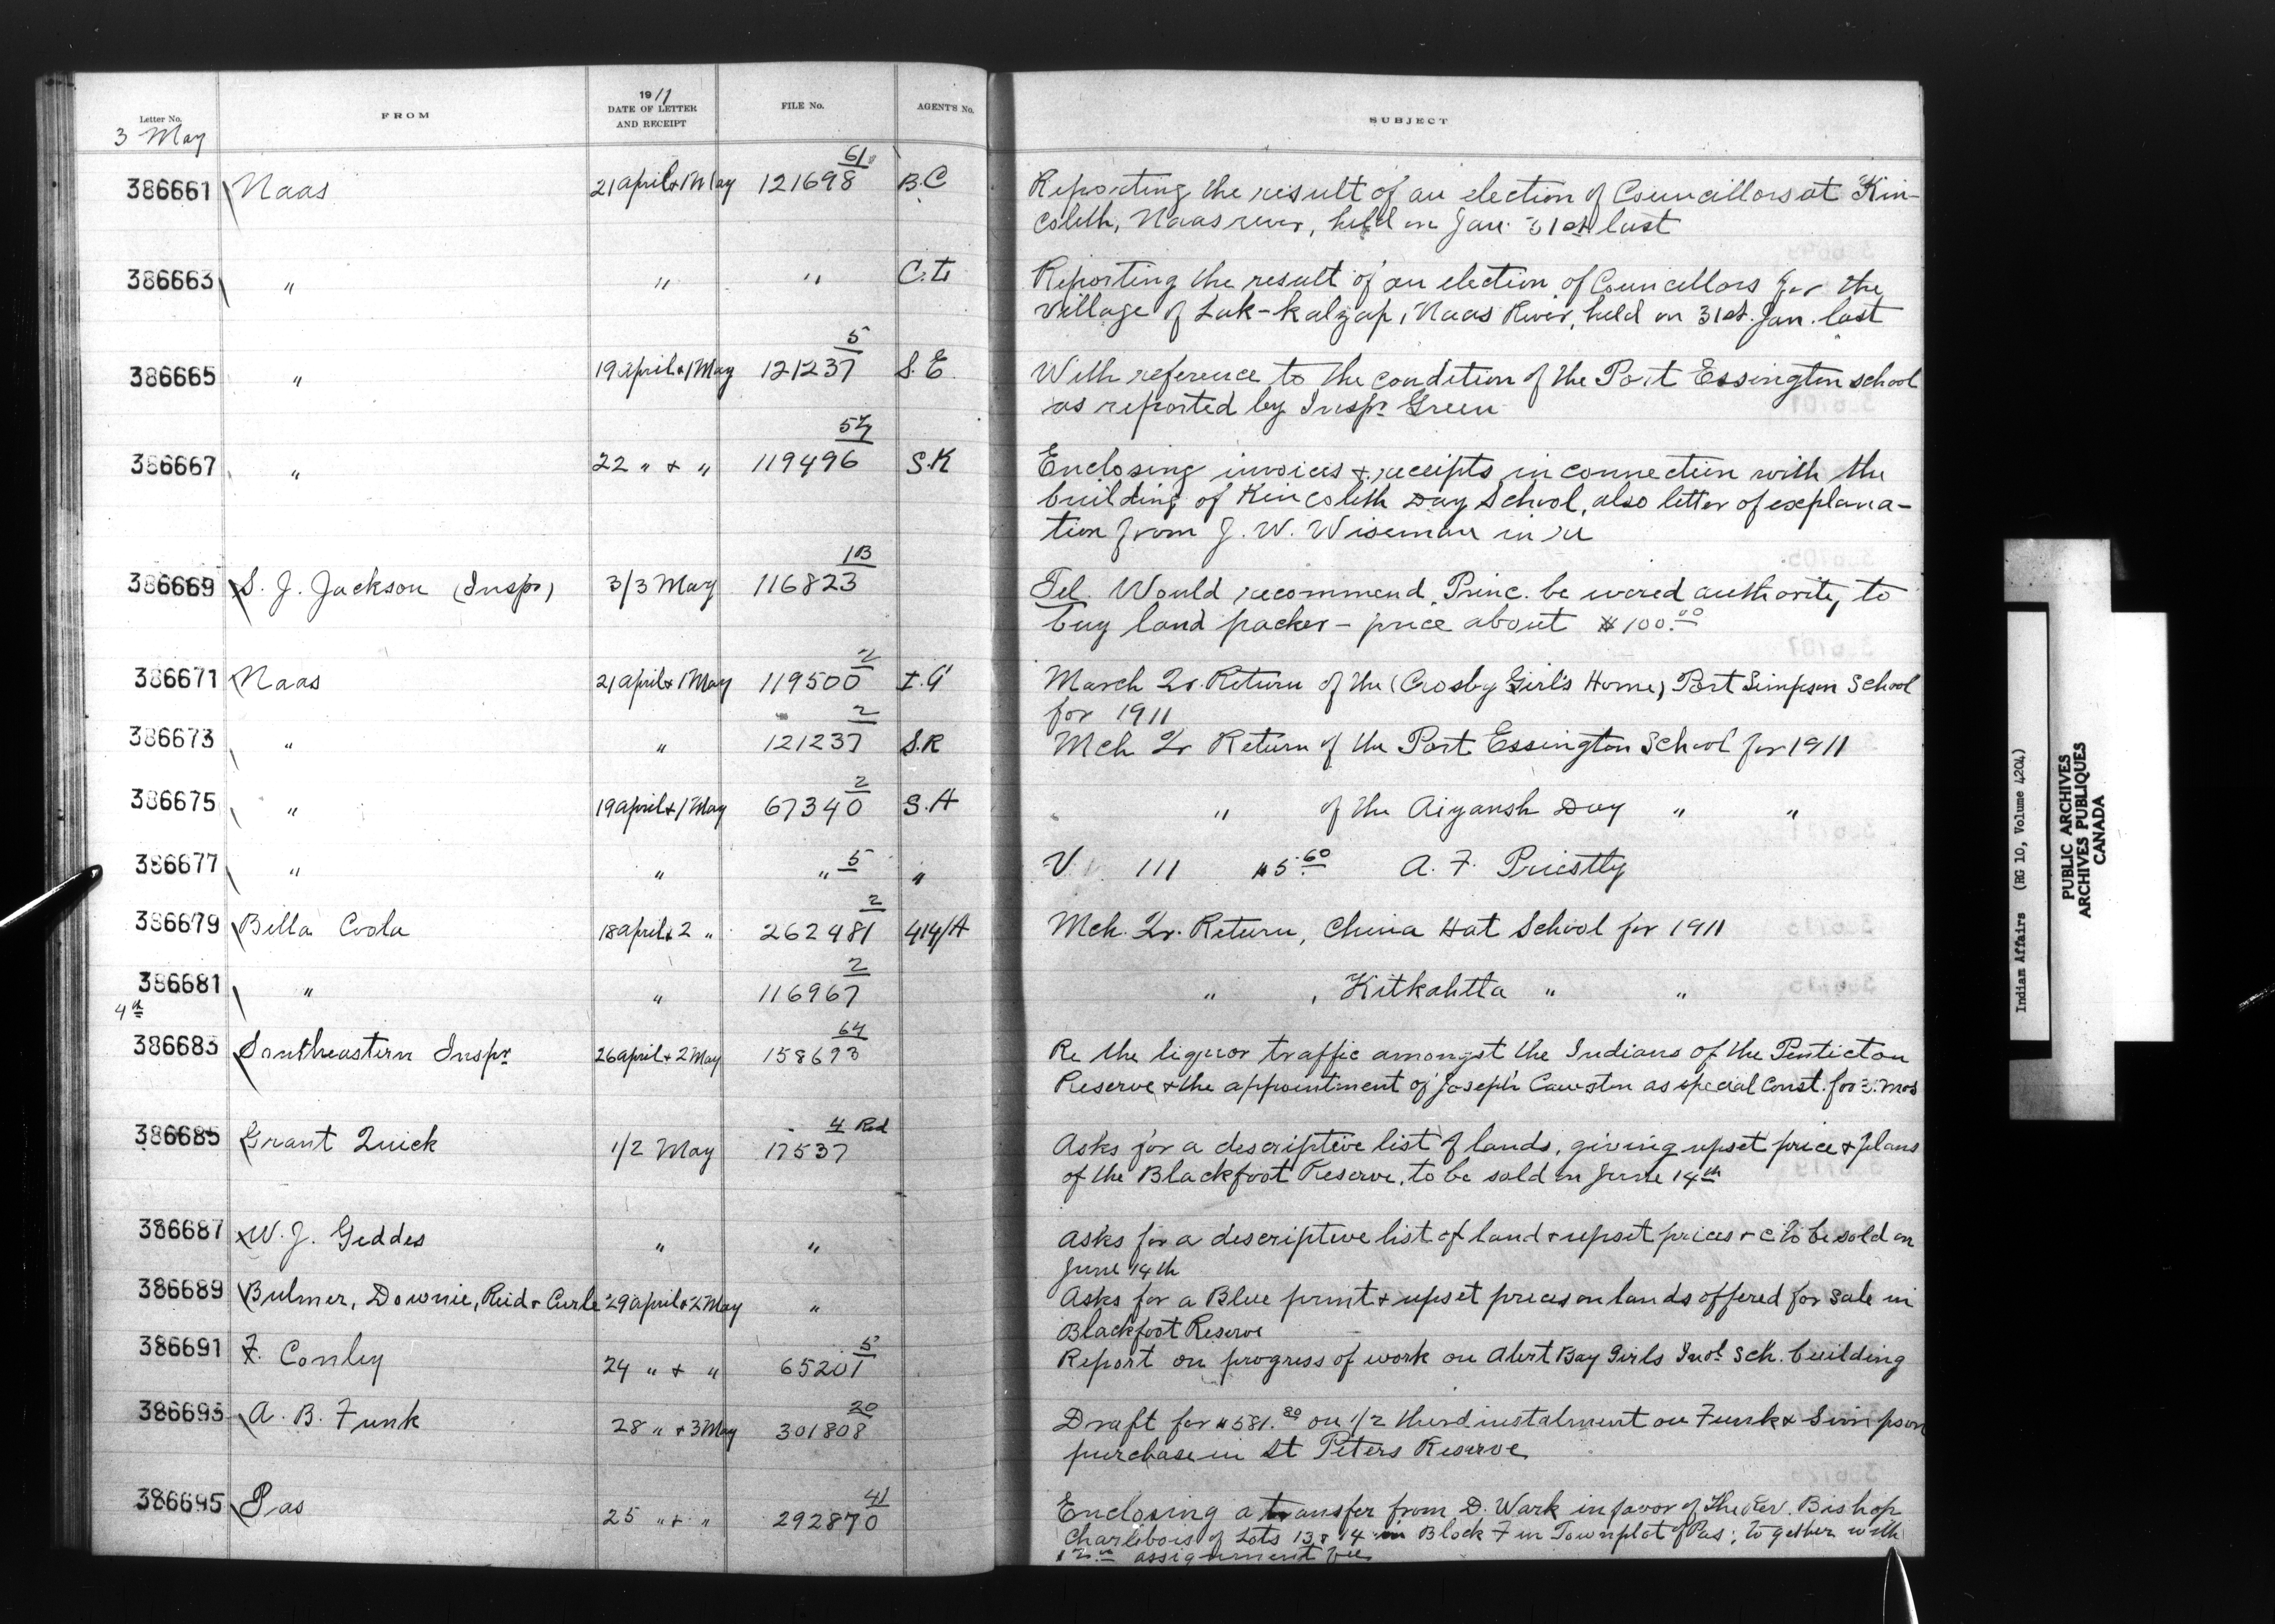 Letter No. FROM 1911 DATE OF LETTER AND RECEIPT FILE No. AGENT'S No. SUBJECT
3 May
386661 Naas 21 april & 1 May 121698 61 B.C Reporting the result of an election of Councillors at Kin-
coleth, Naas river, held on Jan. 31st last
386663 " " " C.L Reporting the result of an election of Councillors for the
village of Lak-kalzap, Naas River, held on 31st. Jan. last
386665 " 19 april & 1 May 121237 5 S.E With reference to the condition of the Port Essington school
as reported by Inspr Green
386667 " 22 " & " 119496 57 S.K Enclosing invoices & receipts in connection with the
building of Kincoleth Day School, also letter of explana-
tion from J. W. Wiseman in re
386669 S. J. Jackson (Inspr) 3/3 May 116823 1B Tel. Would recommend Princ. be wired authority to
buy land packer - price about $100.00
386671 Naas 21 april & 1 May 119500 2 I.G March Qr. Return of the (Crosby Girl's Home) Port Simpson School
for 1911
386673 " " 121237 2 S.R Mch Qr Return of the Port Essington School for 1911
386675 " 19 april & 1 May 67340 2 S.A " of the Aiyansh Day " "
386677 " " " 5 " V. 111 $5.60 A. F. Priestly
386679 Bella Coola 18 april & 2 " 262481 2 414/A Mch. Qr. Return, China Hat School for 1911
386681 " " 116967 2 " , Kitkahtta " "
4th
386683 Southeastern Inspr 26 april & 2 May 158693 64 Re the liquor traffic amongst the Indians of the Penticton
Reserve & the appointment of Joseph Cawston as special Const. for mos
386685 Grant Quick 1/2 May 17537 4 Red Asks for a descriptive list of lands, giving upset price & plans
of the Blackfoot Reserve, to be sold on June 14th
386687 W. J. Geddes " " Asks for a descriptive list of land & upset prices & c to be sold on
June 14th
386689 Bulmer, Downie, Reid & Curle 29 april & 2 May " Asks for a Blue print & upset prices on lands offered for sale in
Blackfoot Reserve
386691 F. Conley 24 " & " 65201 5 Report on progress of work on Alert Bay Girls Indl Sch. building
386693 A. B. Funk 28 " & 3 May 301808 20 Draft for $581.80 on 1/2 third instalment on Funk & Simpson
purchase in St Peters Reserve
386695 Pas 25 " & " 292870 41 Enclosing a transfer from D. Wark in favor of The Rev. Bishop
Charlebois of Lots 13 & 14 in Block F in Townplot of Pas; together with
assignment fee
Indian Affairs (RG 10, Volume 4204)
PUBLIC ARCHIVES
ARCHIVES PUBLIQUES
CANADA